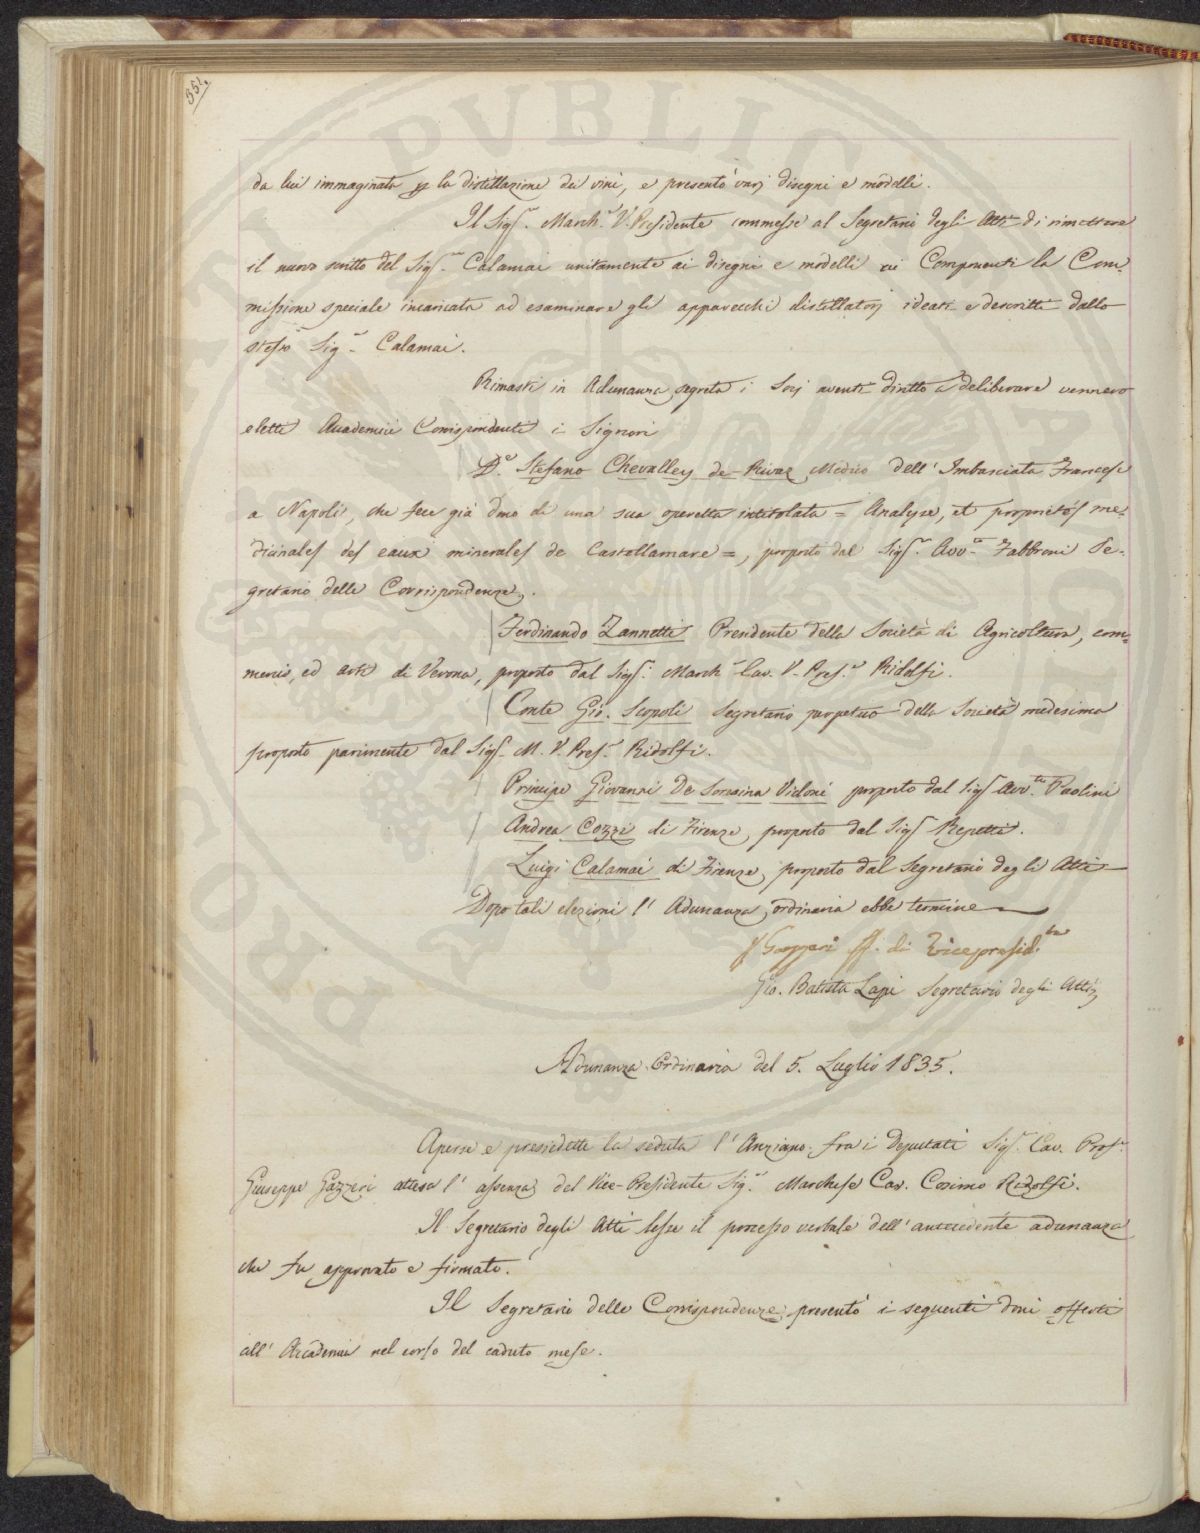 351.
da lui immaginata p la distillazione dei vini, e presentò varj disegni e modelli.
Il Sigr. March. V. Presidente commesse al Segretario degli Atti di rimettere
il nuovo scritto del Sigr. Calamai unitamente ai disegni e modelli ai Componenti la Com=
missione speciale incaricata ad esaminare gli apparecchi distillatorj ideati e descritti dallo
stesso Sigr. Calamai.
Rimasti in Adunanza segreta i Socj aventi diritto a deliberare vennero
eletti Accademici Corrispondenti i Signori
Dr. Stefano Chevalley de-Rivaz Medico dell' Imbasciata Francese
a Napoli, che fece già dono di una sua operetta intitolata = Analyse, et proprietés me=
dicinales des eaux minerales de Castellamare =, proposto dal Sigr. Avvto. Fabbroni Se=
gretario delle Corrispondenze.
Ferdinando Zannetti Presidente della Società di Agricoltura, com=
mercio, ed arti di Verona, proposto dal Sigr. March. Cav. V. Pres. Ridolfi.
Conte Gio. Scopoli Segretario perpetuo della Società medesima
proposto parimente dal Sigr. M. V. Pres. Ridolfi.
Principe Giovanni De Soresina Vidoni proposto dal Sigr Avv.to Paolini
Andrea Cozzi di Firenze, proposto dal Sigr Repetti.
Luigi Calamai di Firenze, proposto dal Segretario degli Atti
Dopo tali elezioni l' Adunanza ordinaria ebbe termine
G Gazzeri ff. di Vicepresid.te
Gio. Batista Lapi Segretario degli Atti
Adunanza Ordinaria del 5. Luglio 1835.
Aperse e presiedette la seduta l' Anziano fra i Deputati Sigr. Cav. Profr.
Giuseppe Gazzeri attesa l' assenza del Vice-Presidente Sigr. Marchese Cav. Cosimo Ridolfi.
Il Segretario degli Atti lesse il processo verbale dell' antecedente adunanza
che fu approvato e firmato.
Il Segretario delle Corrispondenze presentò i seguenti doni offerti
all' Accademia nel corso del caduto mese.